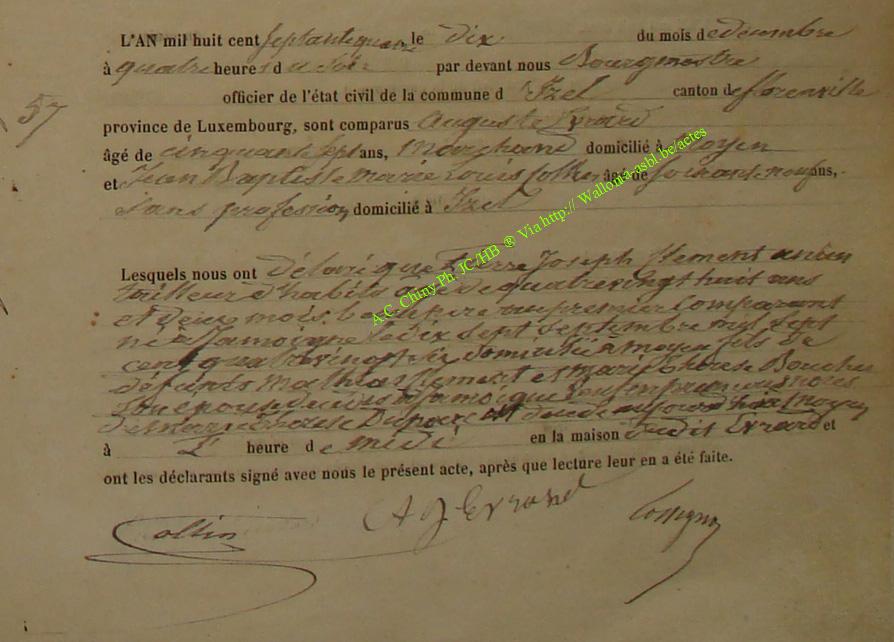 L'AN mil huit cent septante quatre le dix du mois de décembre
à quatre heures du soir par devant nous Bourgmestre
officier de l'état civil de la commune d'Izel canton de florenville
57
province de Luxembourg, sont comparus Auguste Evrard
âgé de cinquante sept ans, Marchand domicilié à Moyen
et Jean Baptiste Marie Louis Collin âgé de soixante neuf ans,
sans profession domicilié à Izel
A.C. Chiny Ph. JC/HB ® Via http:// Wallonia-asbl.be/actes
Lesquels nous ont déclaré que Pierre Joseph ancien
tailleur d'habits âgé de quatre vingt huit ans
et deux mois, beau père au premier Comparant
né à Jamoigne le dix sept septembre mil sept
cent quatre vingt six domicilié à Moyen fils de
défunts Mathias et Marie thérèse
son épouse décédés à Jamoigne veuf en premières noces
de Marie thérèse est décédé aujourd'hui à Moyen
à L' heure de midi en la maison dudit Evrard et
ont les déclarants signé avec nous le présent acte, après que lecture leur en a été faite.
Collin A J Evrard